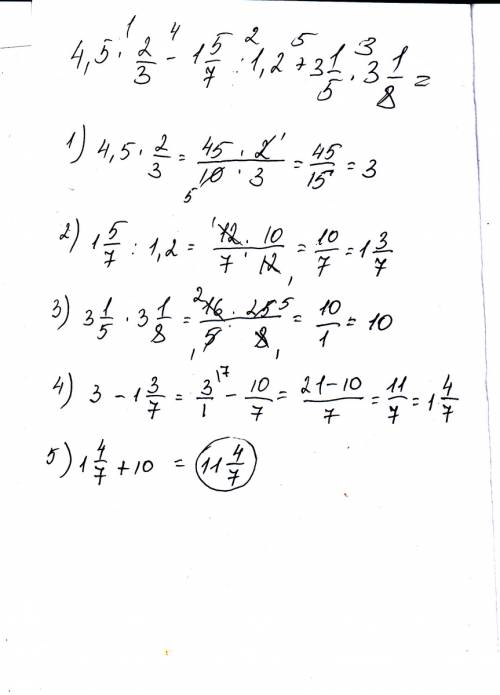 4,5 · 2/3 - 1 5/7 : 1,2 + 3 1/5 · 3 1/8 =
1) 4,5 · 2/3 = (45 · 2)/(10 · 3) = 45/15 = 3
2) 1 5/7 : 1,2 = (12 · 10)/(7 · 12) = 10/7 = 1 3/7
3) 3 1/5 · 3 1/8 = (16 · 25)/(5 · 8) = 10/1 = 10
4) 3 - 1 3/7 = 3/1 - 10/7 = (21-10)/7 = 11/7 = 1 4/7
5) 1 4/7 + 10 = 11 4/7